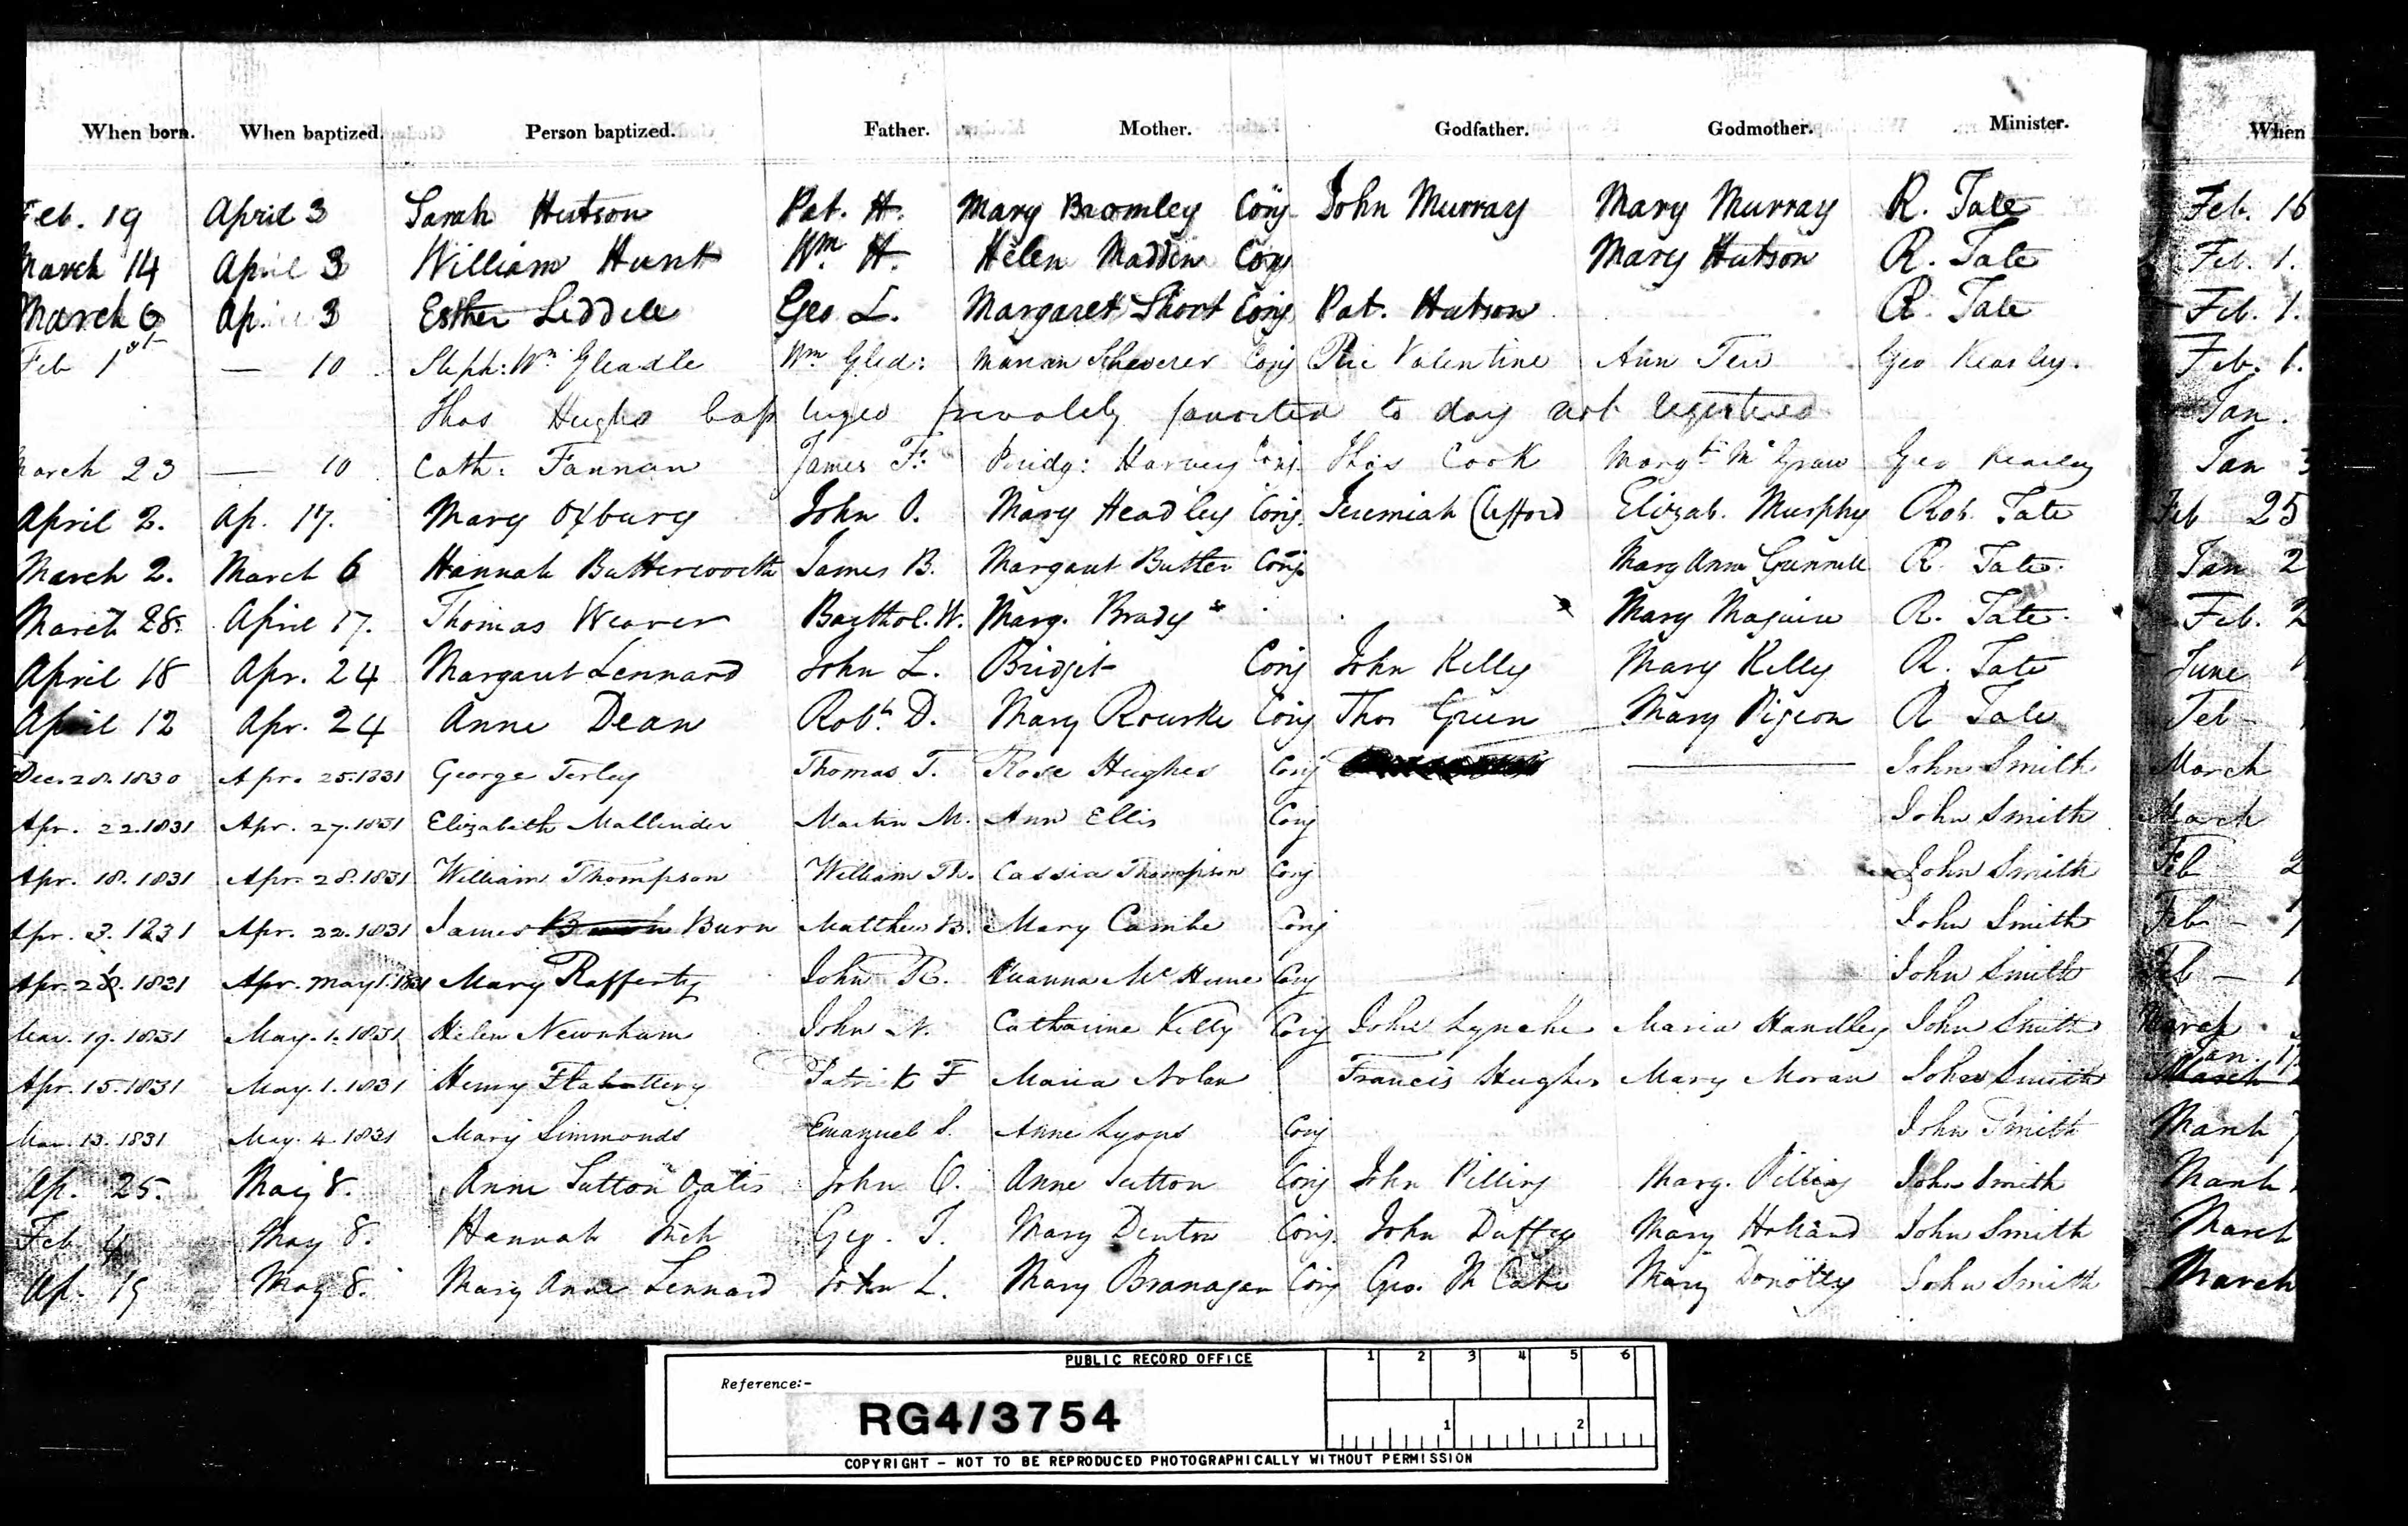 When born. When baptized. Person baptized. Father. Mother. Godfather. Godmother. Minister. When
Feb. 19 April 3 Sarah Hutson Pat. H. Mary Bromley Conj John Murray Mary Murray R. Tate Feb. 16
March 14 April 3 William Hunt Wm. H. Helen Madden Conj Mary Hutson R. Tate Feb. 1.
March 6 Ap. 3 Esther Liddell Geo L. Margaret Short Conj Pat. Hutson R. Tate Feb. 1.
Feb 1st — 10 Steph: Wm Gleadle Wm Gled: Marian Conj Ric Valentine Ann Tew Geo Kearley. Feb. 1.
Thos Hughes privately to day not registered Jan.
March 23 — 10 Cath: Fannan James F: Bridg: Harvey Conj Thos Cook Margt McGraw Geo Kearley Jan 3
April 2. Ap. 17. Mary Oxbury John O. Mary Headley Conj. Jeremiah Clifford Elizab. Murphy Rob. Tate Feb 25
March 2. March 6 Hannah Butterworth James B. Margaret Butler Conj Mary Anne R. Tate. Jan 2
March 28. April 17. Thomas Weaver Barthol. W. Marg. Brady Mary Maguire R. Tate. Feb. 2
April 18 Apr. 24 Margaret Lennard John L. Bridgit Conj John Kelly Mary Kelly R. Tate June 1
April 12 Apr. 24 Anne Dean Robt. D. Mary Rourke Conj Thos Green Mary Pigeon R Tate Feb
Dec. 28. 1830 Apr. 25. 1831 George Terley Thomas T. Rose Hughes Conj John Smith March
Apr. 22. 1831 Apr. 27. 1831 Elizabeth Mallinder Martin M. Ann Ellis Conj John Smith March
Apr. 18. 1831 Apr. 28. 1831 William Thompson William Th. Cassia Thompson Conj John Smith Feb 2
Apr. 3. 1831 Apr. 22. 1831 James Burn Matthew B. Mary Conj John Smith Feb - 1
Apr. 28. 1831 Apr. May 1. 1831 Mary Rafferty John R. Conj John Smith Feb - 1
Mar. 19. 1831 May. 1. 1831 Helen Newnham John N. Catharine Kelly Conj John Lynche Maria Handley John Smith March
Jan. 17
Apr. 15. 1831 May. 1. 1831 Henry Flahattery Patrick F Maria Nolan Francis Hughes Mary Moran John Smith March
Mar. 13. 1831 May. 4. 1831 Mary Simmonds Emanuel S. Anne Lyons Conj John Smith March 7
Ap. 25. May 8. Anne Sutton Oates John O. Anne Sutton Conj John Pilling Marg. Pilling John Smith March
Feb 4 May 8. Hannah Geo. T. Mary Denton Conj. John Duffey Mary Holland John Smith March
Ap. 19 May 8. Mary Anne Lennard John L. Mary Branagan Conj Geo. McCabe Mary Donolly John Smith March
PUBLIC RECORD OFFICE 1 2 3 4 5 6
Reference:-
RG4/3754 1 2
COPYRIGHT - NOT TO BE REPRODUCED PHOTOGRAPHICALLY WITHOUT PERMISSION